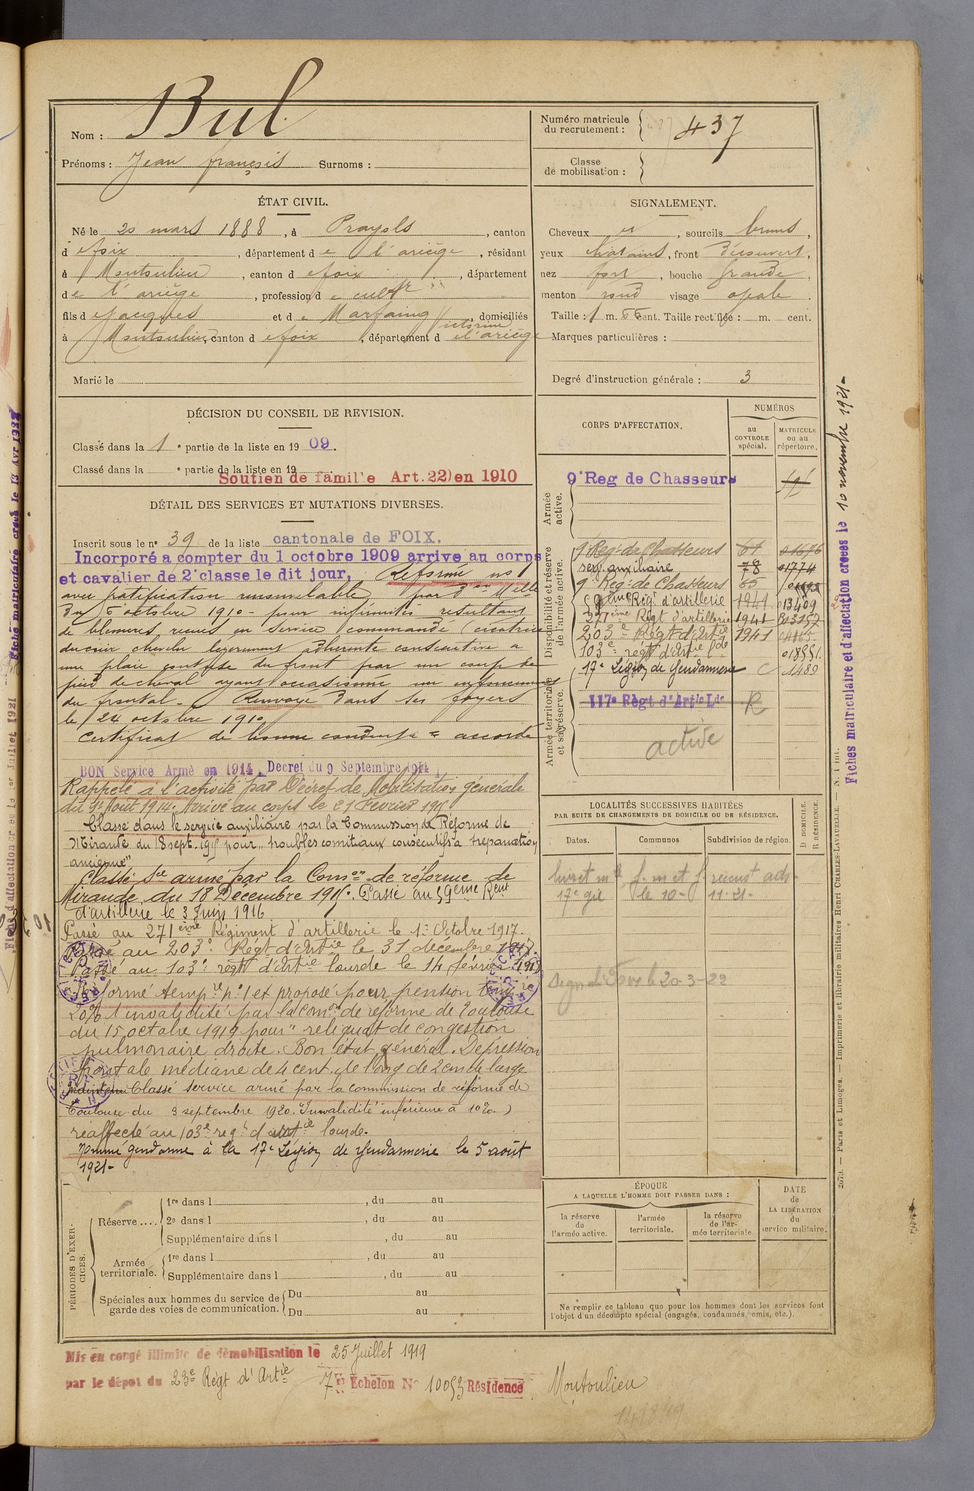 Nom : Bul
Prénoms : Jean françois Surnoms :
Numéro matricule du recrutement : 437
Classe de mobilisation :
ÉTAT CIVIL.
Né le 20 mars 1888, à Prayols, canton
d e foix, département d e l'ariège, résidant
à Montoulieu, canton d e foix, département
d e l'ariège, profession d e cultr
fils d e Jacques et d e Marfaing Victorine, domiciliés
à Montoulieu, canton d e foix, département d e l'ariège
Marié le
SIGNALEMENT.
Cheveux et, sourcils bruns,
yeux chatains, front découvert,
nez fort, bouche grande
menton rond visage ovale.
Taille : 1 m. 66 cent. Taille rectifiée : m. cent.
Marques particulières :
Degré d'instruction générale : 3
DÉCISION DU CONSEIL DE REVISION.
Classé dans la 1e partie de la liste en 1909.
Classé dans la e partie de la liste en 19
Soutien de famille Art. 22) en 1910
DÉTAIL DES SERVICES ET MUTATIONS DIVERSES.
Inscrit sous le n° 39 de la liste cantonale de FOIX.
Incorporé à compter du 1 octobre 1909 arrivé au corps
et cavalier de 2e classe le dit jour. Réformé n° 1
avec gratification renouvelable par
du 6 octobre 1910 - pour infirmités résultant
de blessures reçues en service commandé (cicatrice
du cuir chevelu légèrement adhérente consécutive à
une plaie contuse du front par un coup de
pied de cheval ayant occasionné un enfoncement
du frontal. Renvoyé dans ses foyers
le 24 octobre 1910
Certificat de bonne conduite accordé
BON Service Armé en 1914. Décret du 9 Septembre 1914
Rappelé à l'activité par Décret de Mobilisation générale
du 1er Août 1914. Arrivé au corps le 21 Février 1915
Classé dans le service auxiliaire par la Commission de Réforme de
Mirande du 18 sept. 1915 pour "troubles comitiaux consécutifs à trépanation
ancienne"
Classé Sce armé par la Comon de réforme de
Mirande du 18 Décembre 1915. Passé au 59eme Regt
d'artillerie le 3 Juin 1916
Passé au 271ème Régiment d'artillerie le 1er Octobre 1917.
Passé au 203e Régt d'Artie le 31 décembre 1917
Passé au 103e régt d'Artie lourde le 14 février 1919
Réformé tempre n° 1 et proposé pour pension tempre
20% d'invalidité par la Comon de réforme de Toulouse
du 15 octobre 1919 pour "reliquat de congestion
pulmonaire droite. Bon état général. Dépression
frontale médiane de 4 cent. de long de 2 cent de large
Classé service armé par la commission de réforme de
Toulouse du 3 septembre 1920. (Invalidité inférieure à 10%.)
réaffecté au 103e regt d'artie lourde.
Nommé gendarme à la 17e Légion de Gendarmerie le 5 août
1921-
CORPS D'AFFECTATION.
NUMÉROS
au CONTROLE spécial.
MATRICULE ou au répertoire.
Armée active.
9e Reg de Chasseurs
Disponibilité et réserve de l'armée active.
1er Reg. de Chasseurs 61
serv. auxiliaire 78 01774
9e Reg. de Chasseurs 85
59ème Régt d'artillerie 1941 013409
271ème Régt d'artillerie 1941 013357
203e Régt d'Artie 1941
103e regt d'artie lde 018851.
17e Légion de Gendarmerie C
Armée territoriale et sa réserve.
117e Régt d'Artie Lde R
active
LOCALITÉS SUCCESSIVES HABITÉES
PAR SUITE DE CHANGEMENTS DE DOMICILE OU DE RÉSIDENCE.
Dates. Communes Subdivision de région. D. DOMICILE. R. RÉSIDENCE.
17e gie le 10- 11-21-
le 20-3-22
PÉRIODES D'EXERCICES.
Réserve .... 1re dans l , du au
2e dans l , du au
Supplémentaire dans l , du au
Armée territoriale. 1re dans l , du au
Supplémentaire dans l , du au
Spéciales aux hommes du service de garde des voies de communication. Du au
Du au
ÉPOQUE
A LAQUELLE L'HOMME DOIT PASSER DANS :
la réserve de l'armée active.
l'armée territoriale.
la réserve de l'armée territoriale.
DATE de LA LIBÉRATION du service militaire.
Ne remplir ce tableau que pour les hommes dont les services font
l'objet d'un décompte spécial (engagés, condamnés, omis, etc.).
Mis en congé illimité de démobilisation le 25 Juillet 1919
par le dépot du 23e Régt d'Artie 7e Echelon N° 10053 Résidence Montoulieu
Fiches matriculaire et d'affectation créées le 10 novembre 1921-
Paris et Limoges. — Imprimerie et librairie militaires Henri CHARLES-LAVAUZELLE.
Fiche matriculaire créée le 13 Avr 1922
Fiche d'affectation créée le 1er Juillet 1921